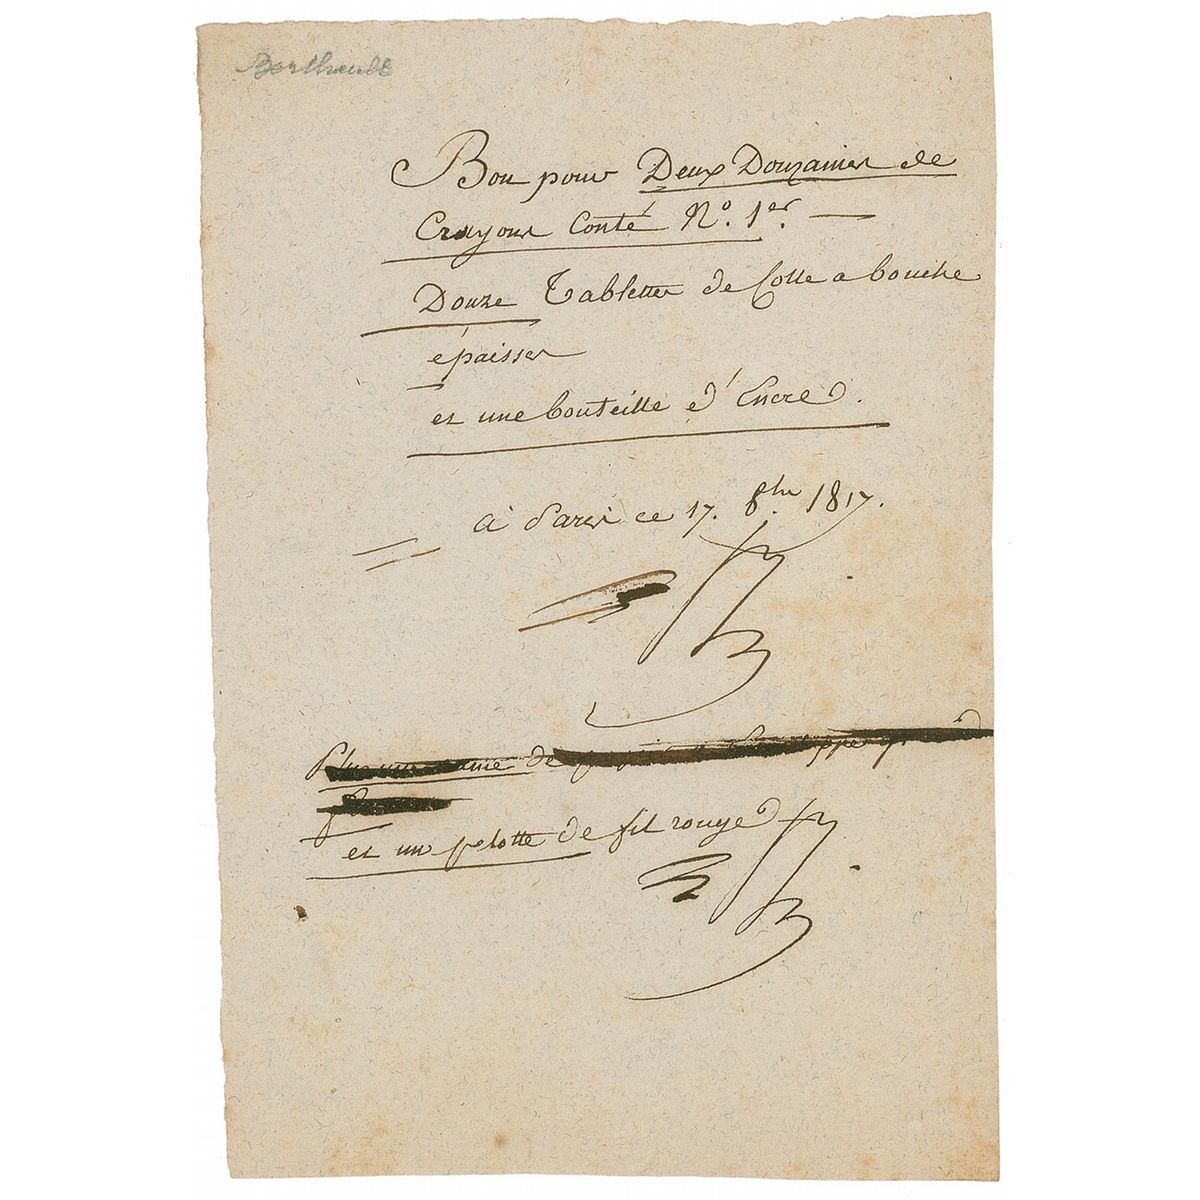 Berthault
Bon pour Deux Douzaines de
Crayons Conté N.º 1.er
Douze Tablettes de Colle a bouche
épaisses
et une bouteille d'Encre.
à Paris ce 17. 8.bre 1817.
Plus une rame de
et un pelotte de fil rouge